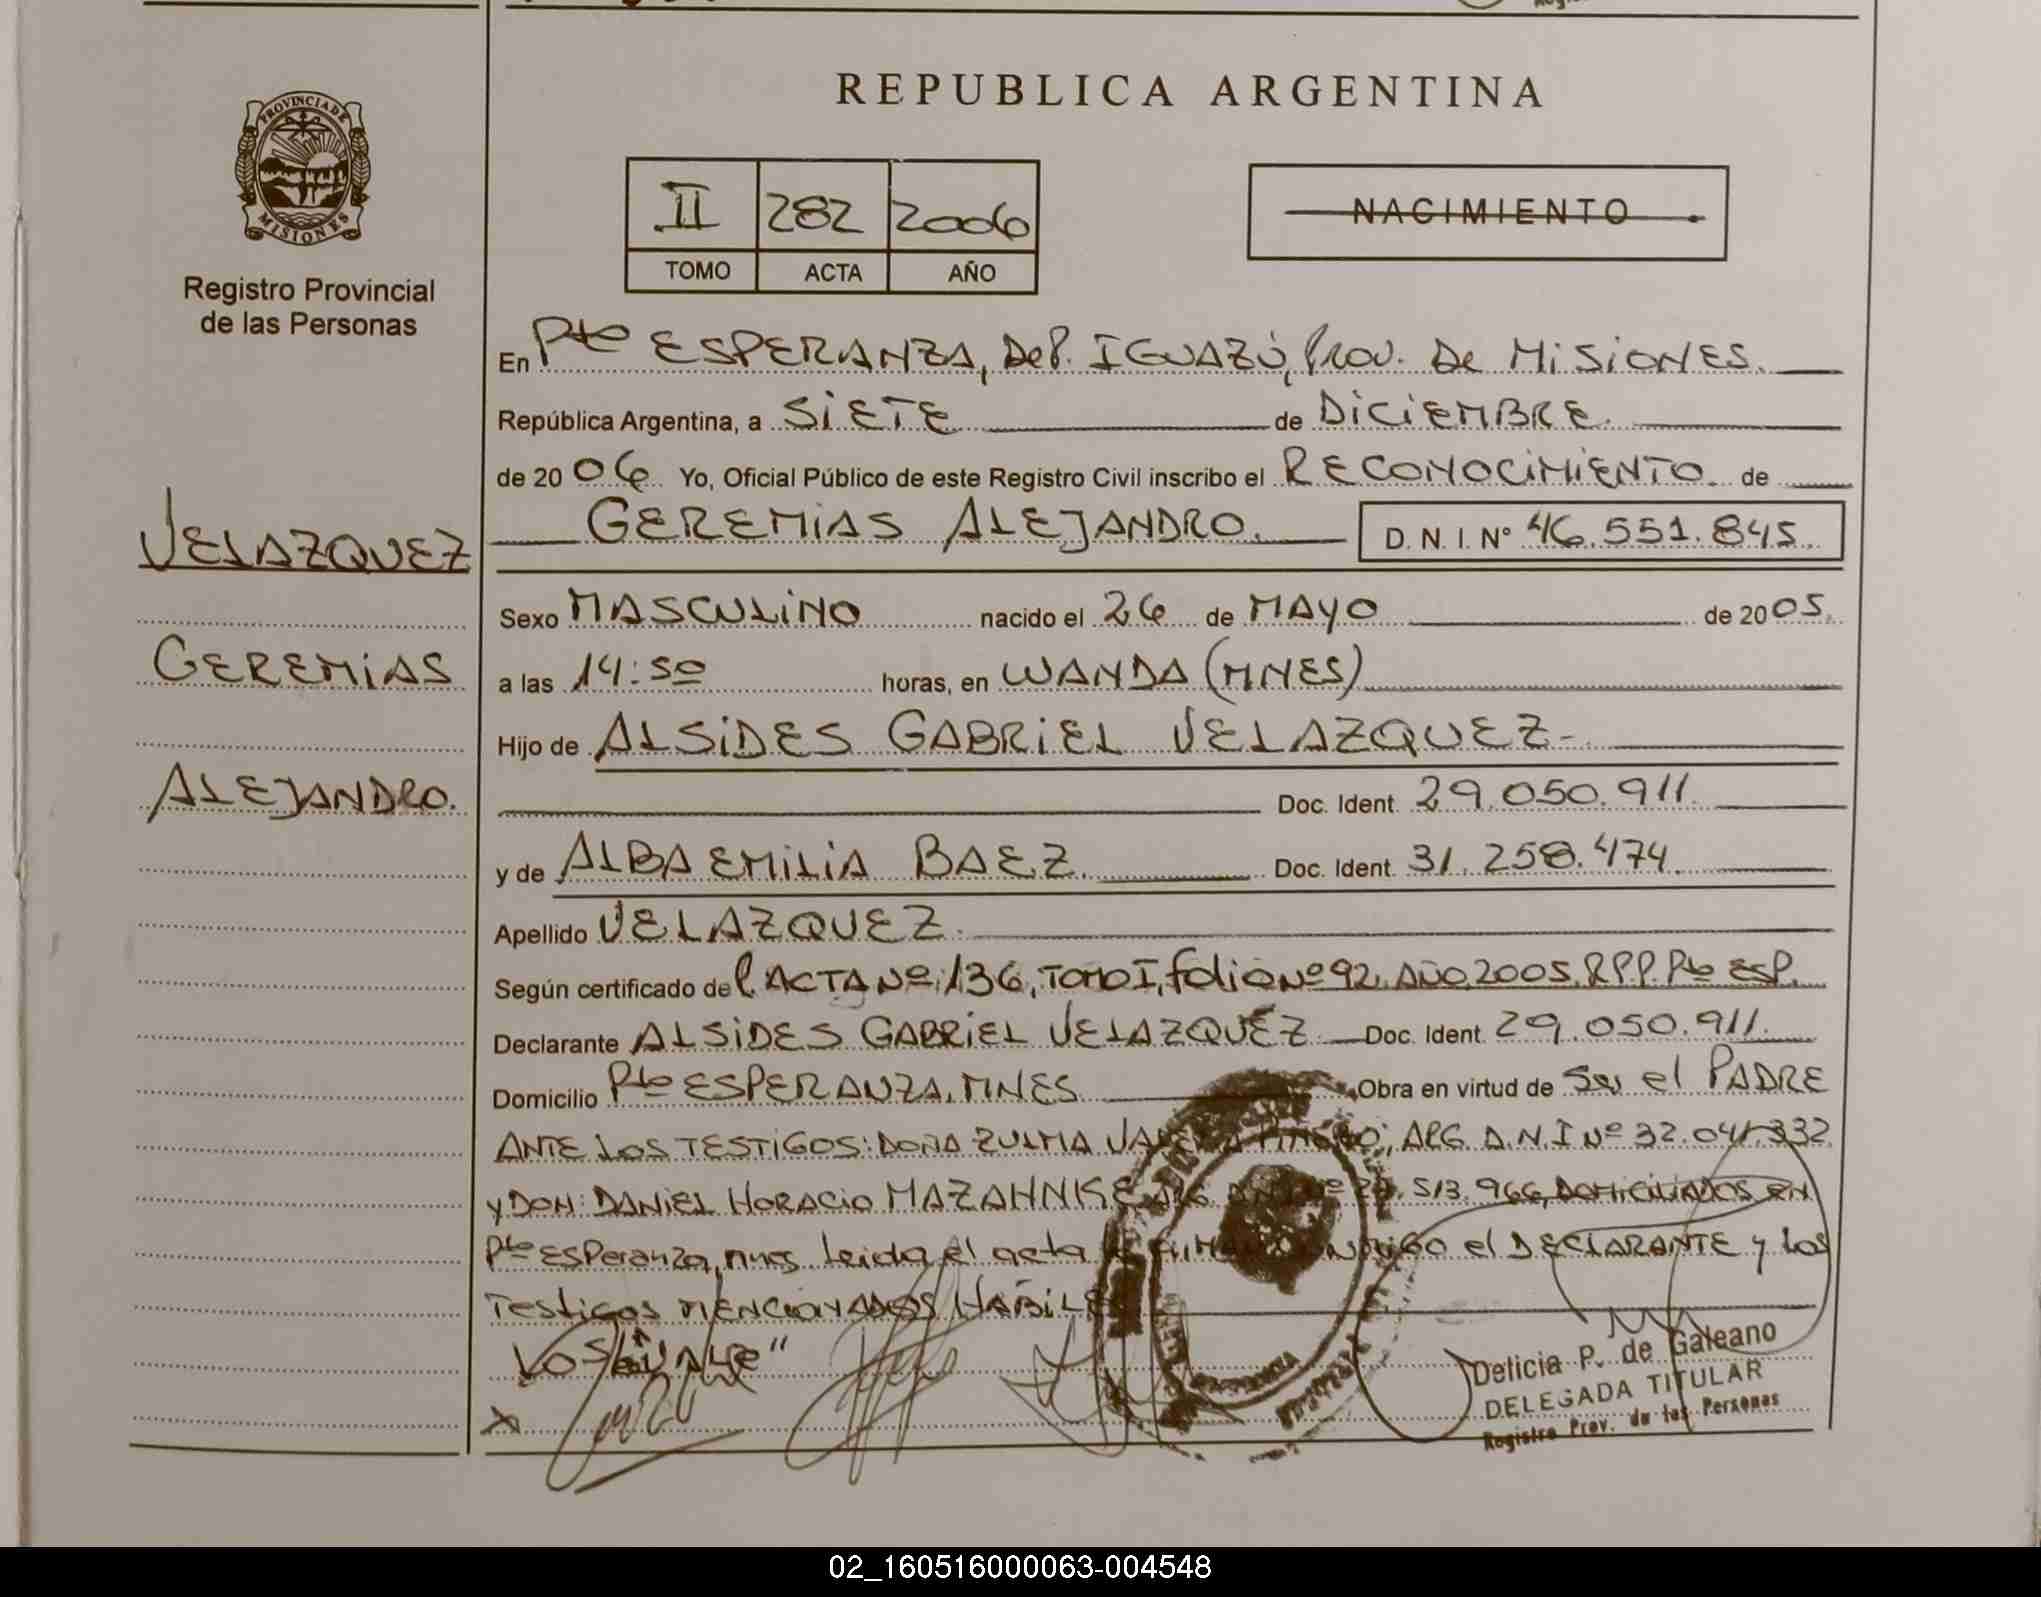 REPUBLICA ARGENTINA
PROVINCIA DE
MISIONES
Registro Provincial
de las Personas
II 282 2006
TOMO ACTA AÑO
NACIMIENTO
En Pto ESPERANZA, Dep. IGUAZÚ, Prov. De MISIONES.
República Argentina, a SIETE de DICIEMBRE.
de 2006 Yo, Oficial Público de este Registro Civil inscribo el RECONOCIMIENTO de
GEREMIAS ALEJANDRO. D. N. I. N° 46.551.845.
VELAZQUEZ
GEREMIAS
ALEJANDRO.
Sexo MASCULINO nacido el 26 de MAYO de 2005.
a las 14:50 horas, en WANDA (MNES)
Hijo de ALSIDES GABRIEL VELAZQUEZ-
Doc. Ident. 29.050.911.
y de ALBA EMILIA BAEZ. Doc. Ident. 31.258.474.
Apellido VELAZQUEZ.
Según certificado del ACTA Nº 136, TOMO I, folio Nº 92. AÑO 2005. R.P.P. Pto ESP.
Declarante ALSIDES GABRIEL VELAZQUEZ Doc. Ident. 29.050.911.
Domicilio Pto ESPERANZA. MNES Obra en virtud de Ser el PADRE
ANTE LOS TESTIGOS: DOÑA ZULMA ARG. D.N.I Nº 32.041.332
y DON: DANIEL HORACIO MAZAHNKE 513.966, DOMICILIADOS EN
Pto Esperanza, mnes leida el acta el DECLARANTE y Los
Testigos MENCIONADOS HÁBILES
Delicia P. de Galeano
DELEGADA TITULAR
Registro Prov. de las Personas
02_160516000063-004548